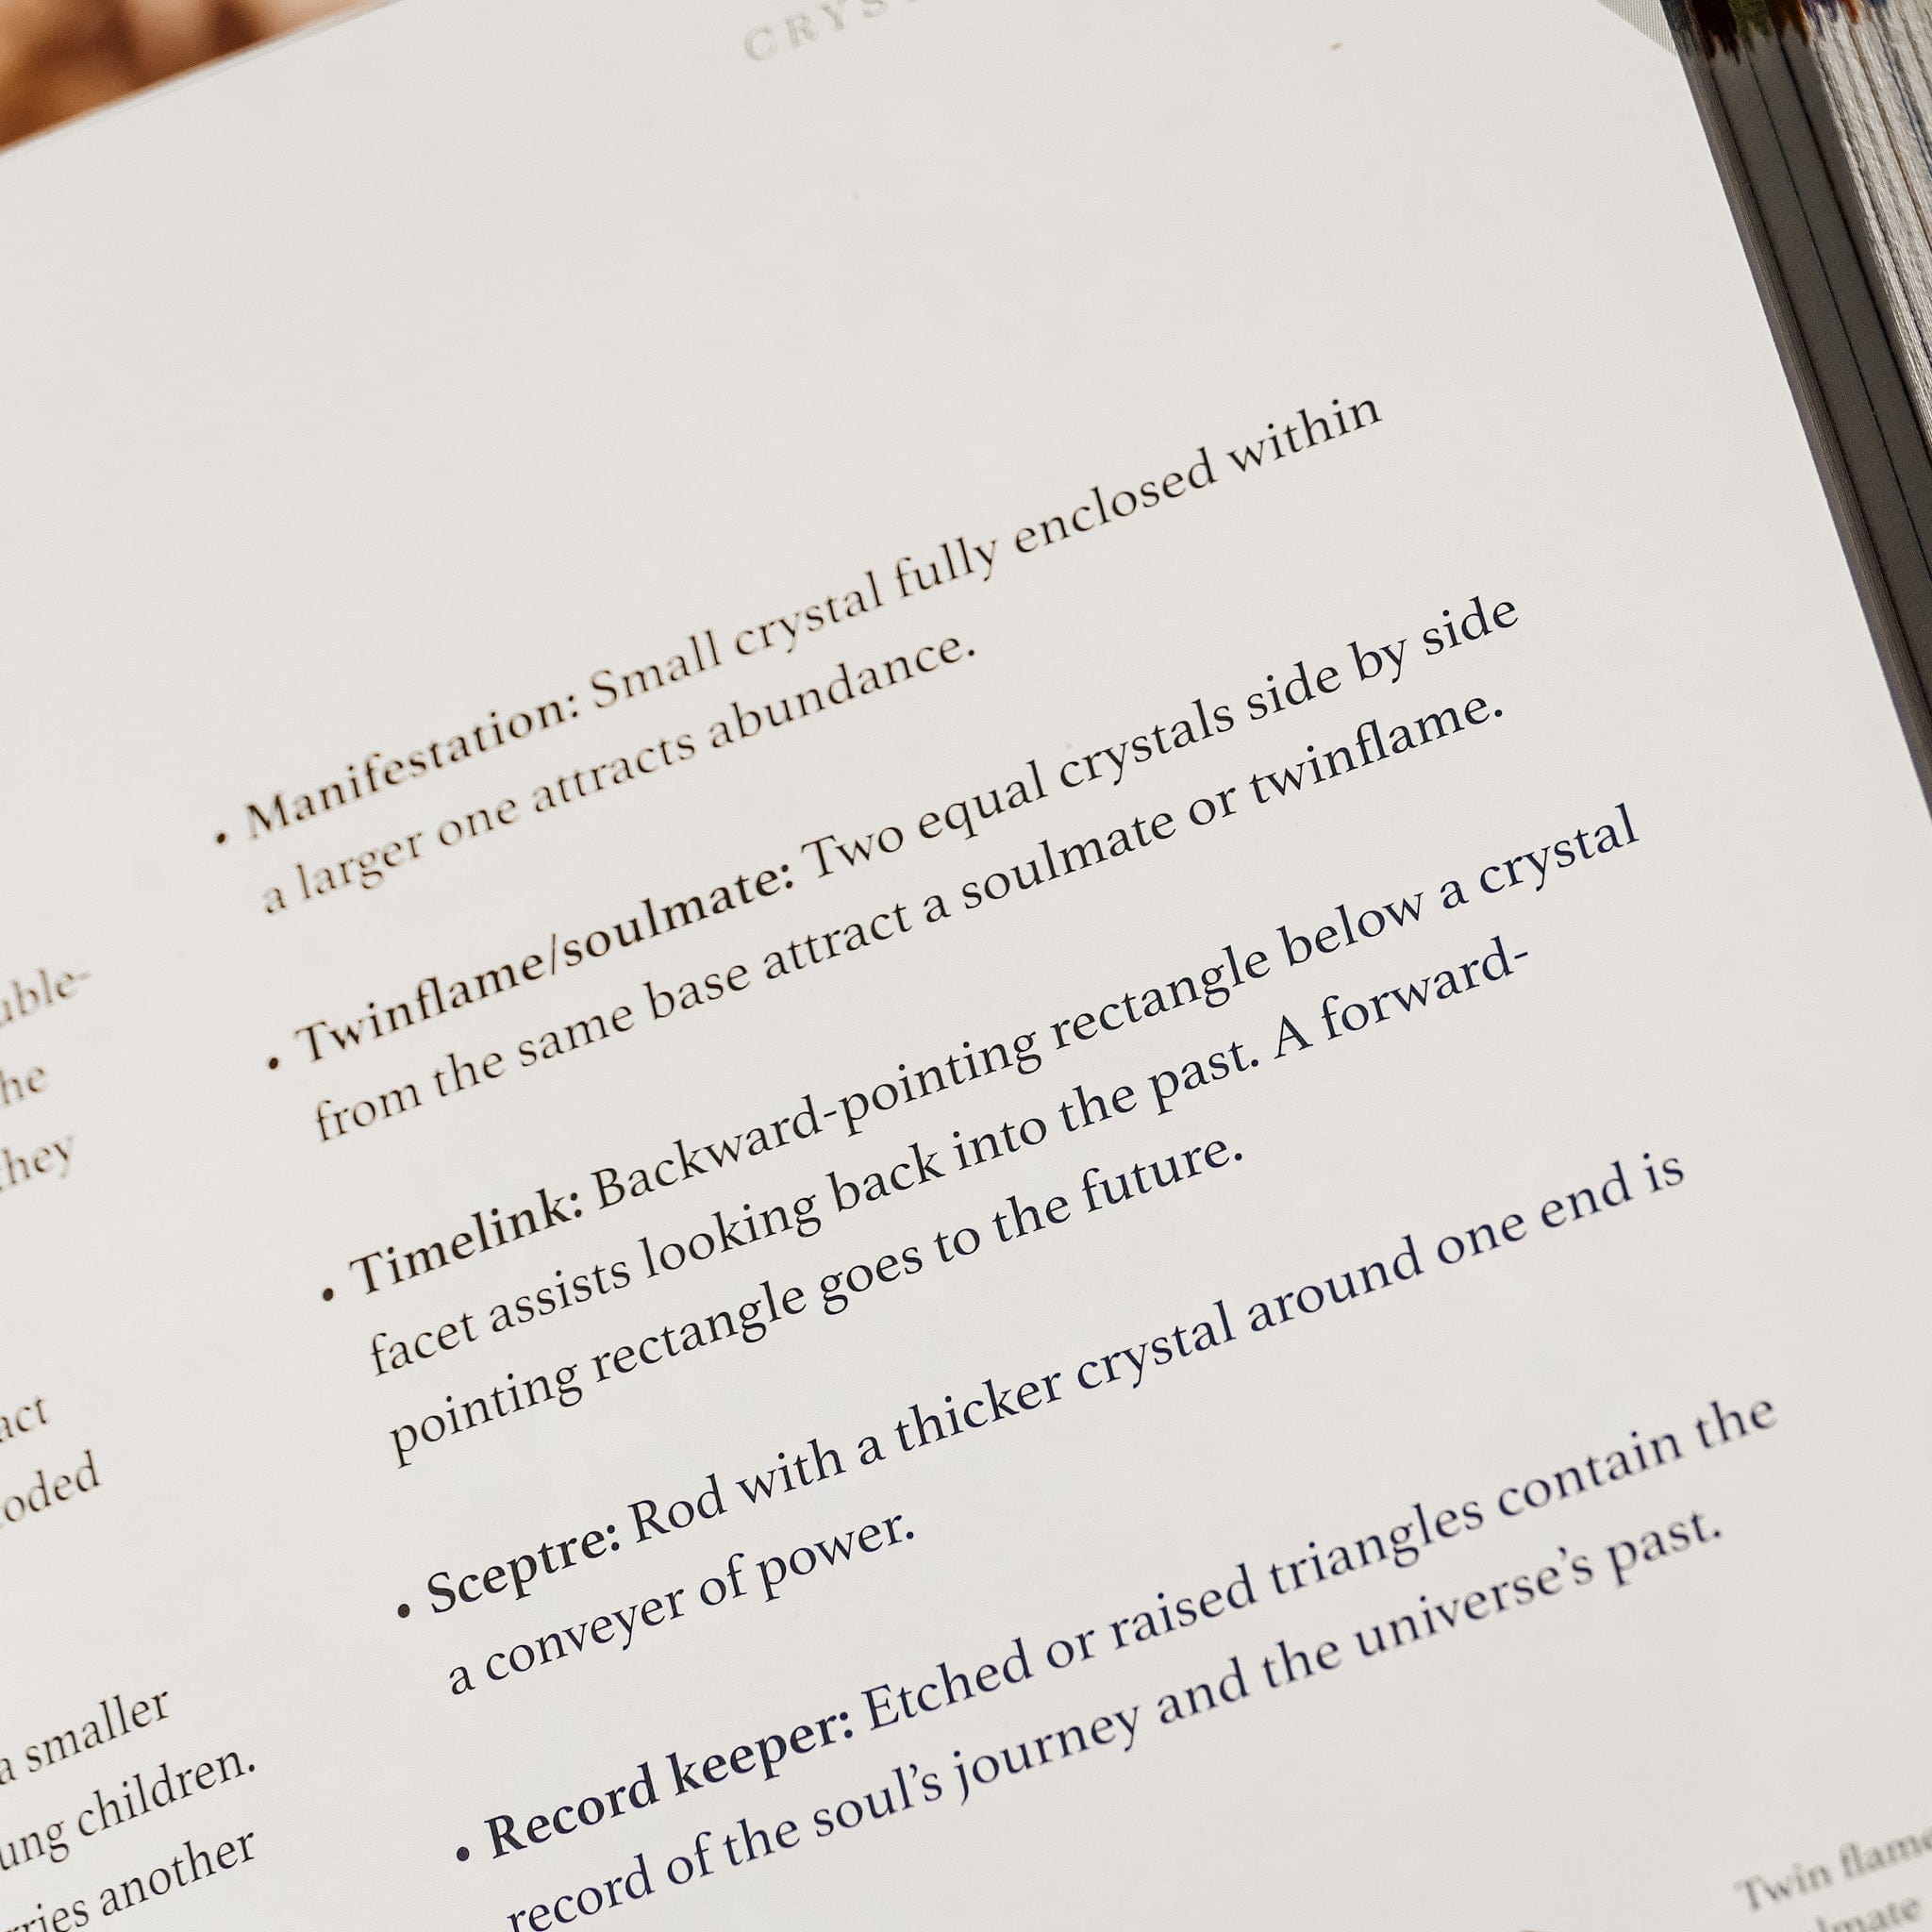 CRYS
uble-
he
hey
act
oded
a smaller
ung children.
rries another
• Manifestation: Small crystal fully enclosed within
a larger one attracts abundance.
• Twinflame/soulmate: Two equal crystals side by side
from the same base attract a soulmate or twinflame.
• Timelink: Backward-pointing rectangle below a crystal
facet assists looking back into the past. A forward-
pointing rectangle goes to the future.
• Sceptre: Rod with a thicker crystal around one end is
a conveyer of power.
• Record keeper: Etched or raised triangles contain the
record of the soul’s journey and the universe’s past.
Twin flame
lmate